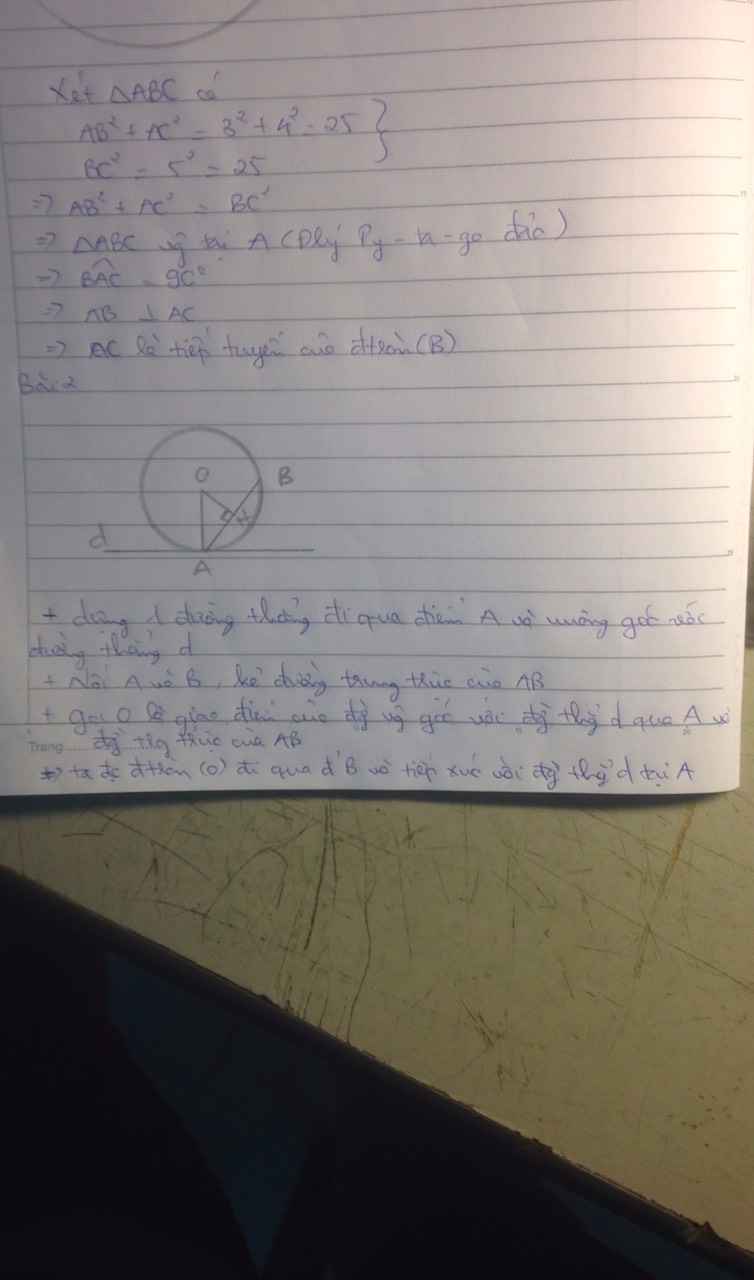 Xét △ABC có
AB² + AC² = 3² + 4² = 25 }
BC² = 5² = 25
=> AB² + AC² = BC²
=> △ABC vg tại A (Đlý Py-ta-go đảo)
=> BAC = 90°
=> AB ⊥ AC
=> AC là tiếp tuyến của đtròn (B)
Bài 2
O B
d
A
+ dựng đường thẳng đi qua điểm A và vuông góc với
đường thẳng d
+ Nối A và B, kẻ đường trung trực của AB
+ gọi O là giao điểm của đg vg góc với đg thg d qua A và
Trang đg trg trực của AB
=> ta đc đtròn (O) đi qua đ' B và tiếp xúc với đg thg d tại A